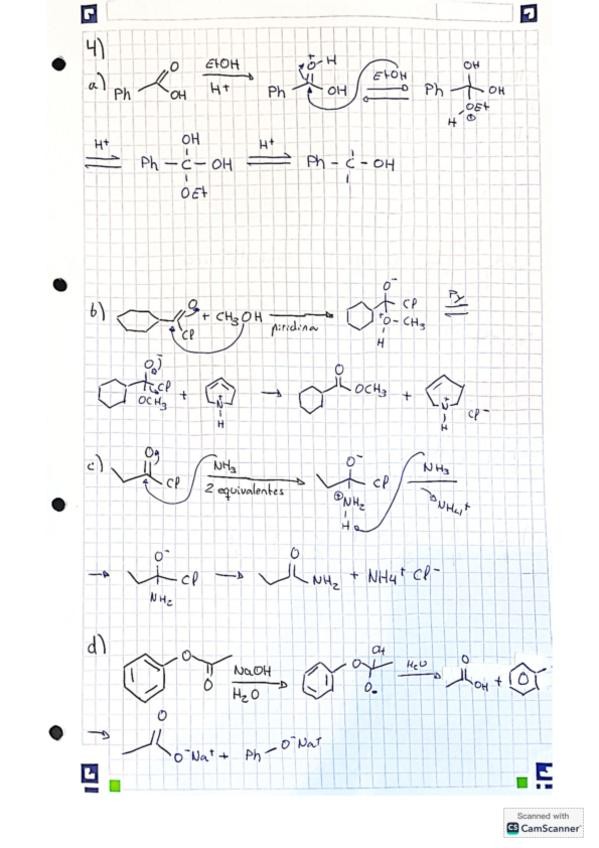 4)
a) Ph O OH EtOH H+ Ph O+-H OH EtOH Ph OH OH OEt H ⊕
H+ Ph - C - OH OH OEt H+ Ph - C - OH
b) O Cl + CH3OH piridina O- Cl O+-CH3 H Py
O- Cl OCH3 + N+ H → O OCH3 + N+ H Cl-
c) O Cl NH3 2 equivalentes O- Cl ⊕NH2 H NH3 NH4+
→ O- Cl NH2 → O NH2 + NH4+ Cl-
d) O O NaOH H2O O OH O- H2O O OH +
→ O O-Na+ + Ph - O-Na+
Scanned with
CS CamScanner